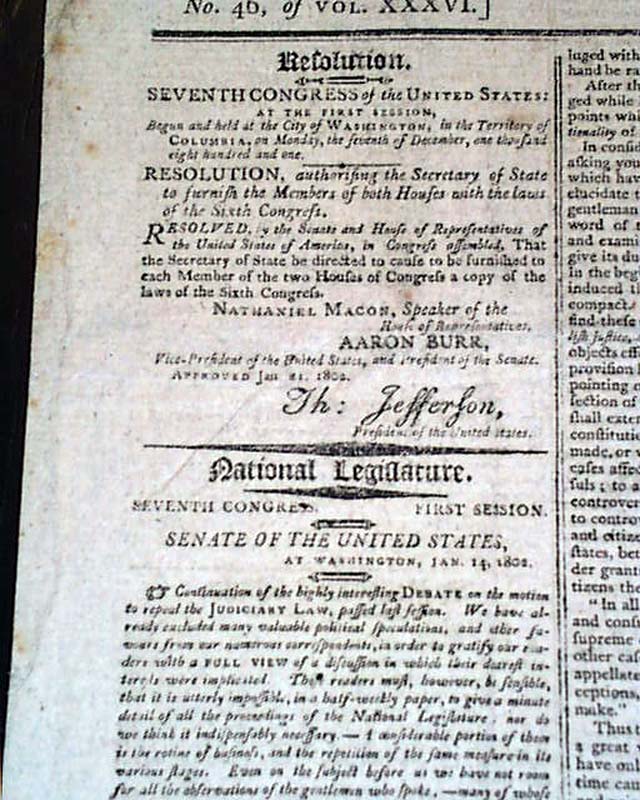 No. 46, of VOL. XXXVI.]
Resolution.
SEVENTH CONGRESS of the UNITED STATES:
AT THE FIRST SESSION,
Begun and held at the City of WASHINGTON, in the Territory of
COLUMBIA, on Monday, the seventh of December, one thousand
eight hundred and one.
RESOLUTION, authoriſing the Secretary of State
to furniſh the Members of both Houſes with the laws
of the Sixth Congreſs.
RESOLVED, by the Senate and Houſe of Repreſentatives of
the United States of America, in Congreſs aſſembled, That
the Secretary of State be directed to cauſe to be furniſhed to
each Member of the two Houſes of Congreſs a copy of the
laws of the Sixth Congreſs.
NATHANIEL MACON, Speaker of the
Houſe of Repreſentatives.
AARON BURR,
Vice-Preſident of the United States, and Preſident of the Senate.
APPROVED Jan 21. 1802.
Th: Jefferſon,
Preſident of the United States.
National Legiſlature.
SEVENTH CONGRESS. FIRST SESSION.
SENATE OF THE UNITED STATES,
AT WASHINGTON, JAN. 14, 1802.
☞ Continuation of the highly intereſting DEBATE on the motion
to repeal the JUDICIARY LAW, paſſed laſt ſeſſion. We have al-
ready excluded many valuable political ſpeculations, and other fa-
vours from our numerous correſpondents, in order to gratify our rea-
ders with a FULL VIEW of a diſcuſſion in which their deareſt in-
tereſts were implicated. Theſe readers muſt, however, be ſenſible,
that it is utterly impoſſible, in a half-weekly paper, to give a minute
detail of all the proceedings of the National Legiſlature, nor do
we think it indiſpenſably neceſſary.—A conſiderable portion of them
is the rotine of buſineſs, and the repetition of the ſame meaſure in its
various ſtages. Even on the ſubject before us we have not room
for all the obſervations of the gentlemen who ſpoke,—many of whoſe
luged with
hand be ra
After th
ged while
points whi
tionality of
In conſid
aſking you
which hav
elucidate t
gentleman
word of t
and exami
give its du
In the beg
induced th
compact
find theſe
liſh juſtice,
objects eſt
proviſion
pointing o
ſection of
ſhall exter
conſtituti
made, or w
caſes affec
ſuls; to a
controver
to contro
and citize
ſtates, bet
der grant
tizens the
"In all
and conſu
ſupreme
other caſ
appellate
ceptions,
make."
Thus
a great
have onl
time can